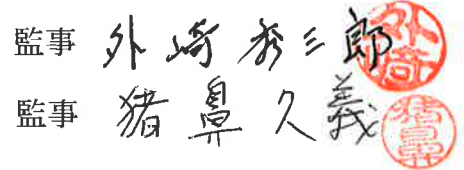 監事 外崎秀三郎 外崎
監事 猪鼻久義 猪鼻